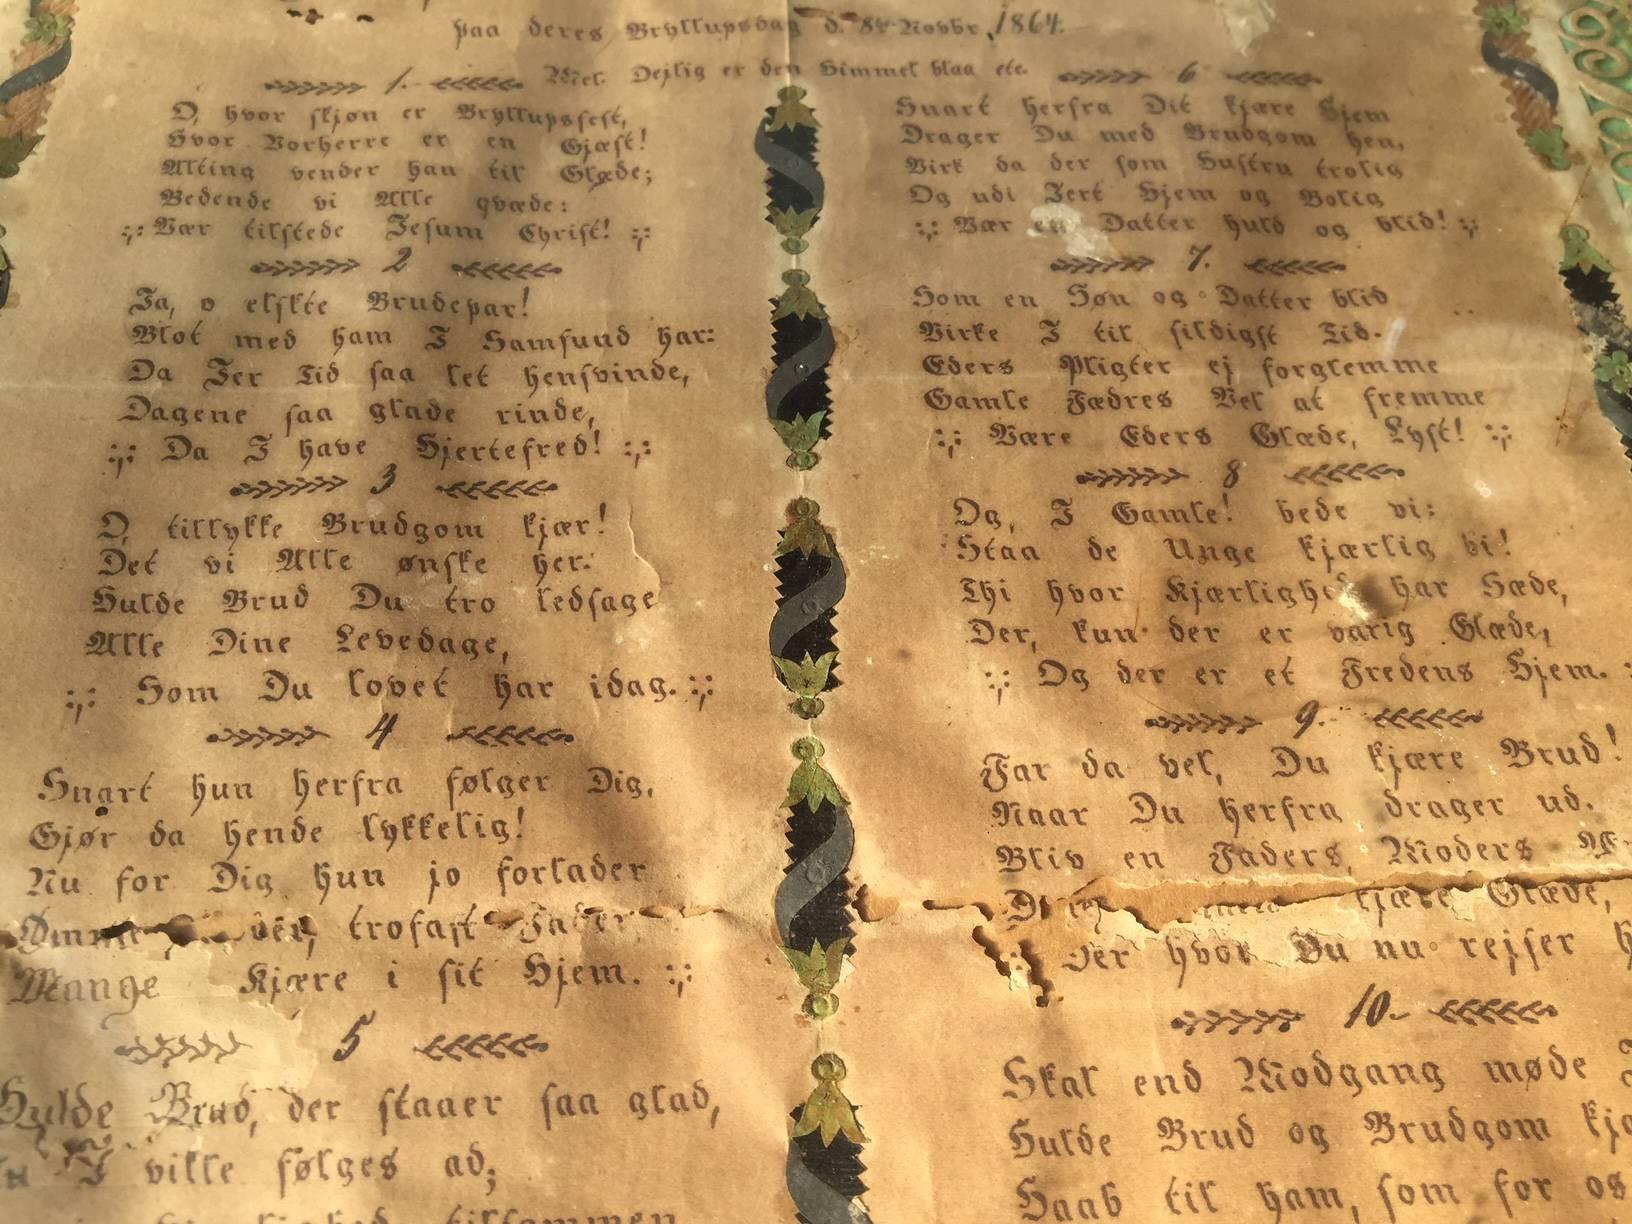 paa deres Bryllupsdag d. 8de Novbr. 1864.
Mel. Dejlig er den Himmel blaa etc.
1.
O, hvor skjøn er Bryllupsfest,
Hvor Vorherre er en Gjæst!
Alting vender han til Glæde;
Bedende vi Alle qvæde:
:,: Vær tilstede Jesum Christ! :,:
2
Ja, o elskte Brudepar!
Blot med ham I Samfund har:
Da Jer Tid saa let hensvinde,
Dagene saa glade rinde,
:,: Da I have Hjertefred! :,:
3
O, tillykke Brudgom kjær!
Det vi Alle ønske her:
Hulde Brud Du tro ledsage
Alle Dine Levedage,
:,: Som Du lovet har idag. :,:
4
Snart hun herfra følger Dig,
Gjør da hende lykkelig!
Nu for Dig hun jo forlader
trofast Fader
Mange Kjære i sit Hjem. :,:
5
Hulde Brud, der staaer saa glad,
I ville følges ad;
tilsammen
6
Snart herfra Dit kjære Hjem
Drager Du med Brudgom hen,
Virk da der som Hustru trolig
Og udi Jert Hjem og Bolig
:,: Vær en Datter huld og blid! :,:
7.
Som en Søn og Datter blid
Virke I til sildigst Tid.
Eders Pligter ej forglemme
Gamle Fædres Vel at fremme
:,: Være Eders Glæde, Lyst! :,:
8
Og, I Gamle! bede vi:
Staa de Unge kjærlig bi!
Thi hvor Kjærlighed har Sæde,
Der, kun der er varig Glæde,
:,: Og der er et Fredens Hjem.
9.
Far da vel, Du kjære Brud!
Naar Du herfra drager ud.
Bliv en Faders, Moders
kjære Glæde,
Der hvor Du nu rejser
10.
Skal end Modgang møde
Hulde Brud og Brudgom
Haab til ham, som for os